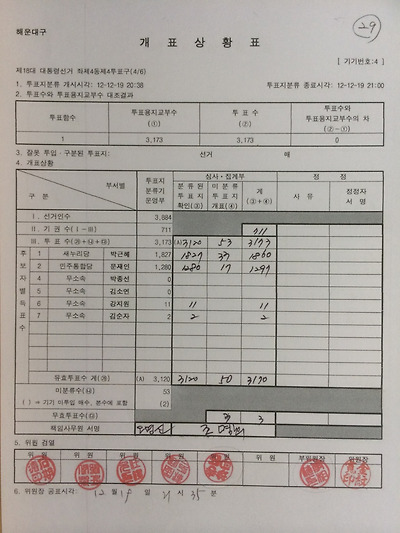 해운대구
29
개 표 상 황 표
[ 기기번호:4 ]
제18대 대통령선거 좌제4동제4투표구(4/6)
1. 투표지분류 개시시각: 12-12-19 20:38 투표지분류 종료시각: 12-12-19 21:00
2. 투표수와 투표용지교부수 대조결과
투표함수 투표용지교부수 (①) 투 표 수 (②) 투표수와 투표용지교부수의 차 (②-①)
1 3,173 3,173 0
3. 잘못 투입·구분된 투표지: 선거 매
4. 개표상황
구 분 부서별 투표지 분류기 운영부 심사·집계부 정 정
분류된 투표지 확인(③) 미분류 투표지 개표(④) 계 (③+④) 사 유 정정자 서 명
Ⅰ. 선거인수 3,884
Ⅱ. 기 권 수(Ⅰ-Ⅲ) 711 711
Ⅲ. 투 표 수 3,173 (A) 3120 53 3173
후보자별득표수
1 새누리당 박근혜 1,827 1827 33 1860
2 민주통합당 문재인 1,280 1280 17 1297
4 무소속 박종선 (0)
5 무소속 김소연 (0)
6 무소속 강지원 11 11 11
7 무소속 김순자 2 2 2
유효투표수 계 (A) 3,120 3120 50 3170
미분류수 53
( ) = 기기 미투입 매수, 본수에 포함 (2)
무효투표수 3 3
책임사무원 서명
5. 위원 검열
위 원 위 원 위 원 위 원 위 원 위 원 부위원장 위원장
6. 위원장 공표시각: 12 월 19 일 21 시 35 분